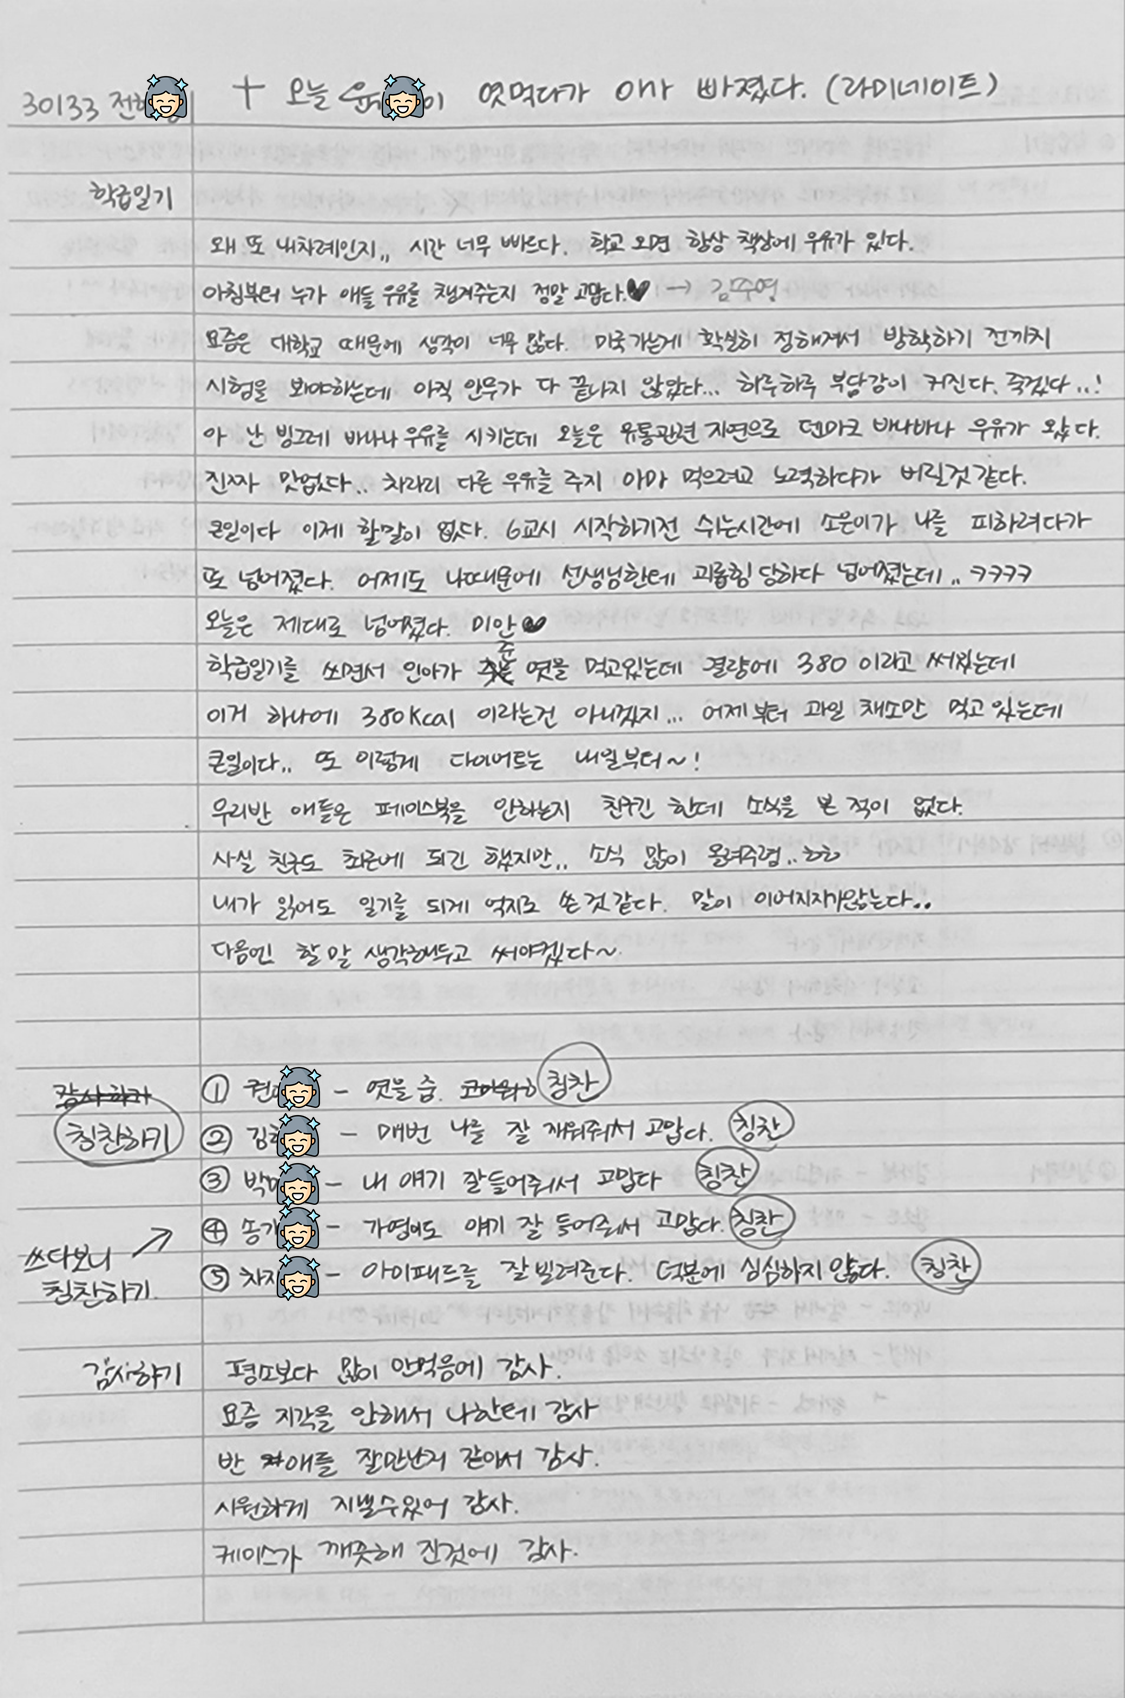 30133 전
+ 오늘 윤 이 엿먹다가 이빠 빠졌다. (라미네이트)
학급일기
왜 또 내차례인지,, 시간 너무 빠르다. 학교 오면 항상 책상에 우유가 있다.
아침부터 누가 애들 우유를 챙겨주는지 정말 고맙다.♥ → 김주영
요즘은 대학교 때문에 생각이 너무 많다. 미국가는게 확실히 정해져서 방학하기 전까지
시험을 봐야하는데 아직 안무가 다 끝나지 않았다... 하루하루 부담감이 커진다. 죽겠다..!
아 난 빙그레 바나나 우유를 시키는데 오늘은 유통관련 지연으로 덴마크 바나바나 우유가 왔다.
진짜 맛없다.. 차라리 다른 우유를 주지 아마 먹으려고 노력하다가 버릴것 같다.
큰일이다 이제 할말이 없다. 6교시 시작하기전 쉬는시간에 소은이가 나를 피하려다가
또 넘어졌다. 어제도 나때문에 선생님한테 괴롭힘 당하다 넘어졌는데,, ㅋㅋㅋㅋ
오늘은 제대로 넘어졌다. 미안♥
학급일기를 쓰면서 인아가 준 엿을 먹고있는데 열량에 380 이라고 써있는데
이거 하나에 380Kcal 이라는건 아니겠지... 어제부터 과일 채소만 먹고 있는데
큰일이다.. 또 이렇게 다이어트는 내일부터~!
우리반 애들은 페이스북을 안하는지 친구긴 한데 소식을 본 적이 없다.
사실 친구도 최근에 되긴 했지만,, 소식 많이 올려주렴..ㅎㅎ
내가 읽어도 일기를 되게 억지로 쓴 것 같다. 말이 이어지지가않는다..
다음엔 할 말 생각해두고 써야겠다~
감사하기
칭찬하기
① 권 - 엿을 줌. 칭찬
② 김 - 매번 나를 잘 깨워줘서 고맙다. 칭찬
③ 박 - 내 얘기 잘들어줘서 고맙다 칭찬
④ 송 - 가영이도 얘기 잘 들어줘서 고맙다. 칭찬
쓰다보니
칭찬하기.
⑤ 차 - 아이패드를 잘빌려준다. 덕분에 심심하지 않다. 칭찬
감사하기
평소보다 많이 안먹음에 감사.
요즘 지각을 안해서 나한테 감사
반 애를 잘만난거 같아서 감사.
시원하게 지낼수있어 감사.
케이스가 깨끗해 진것에 감사.